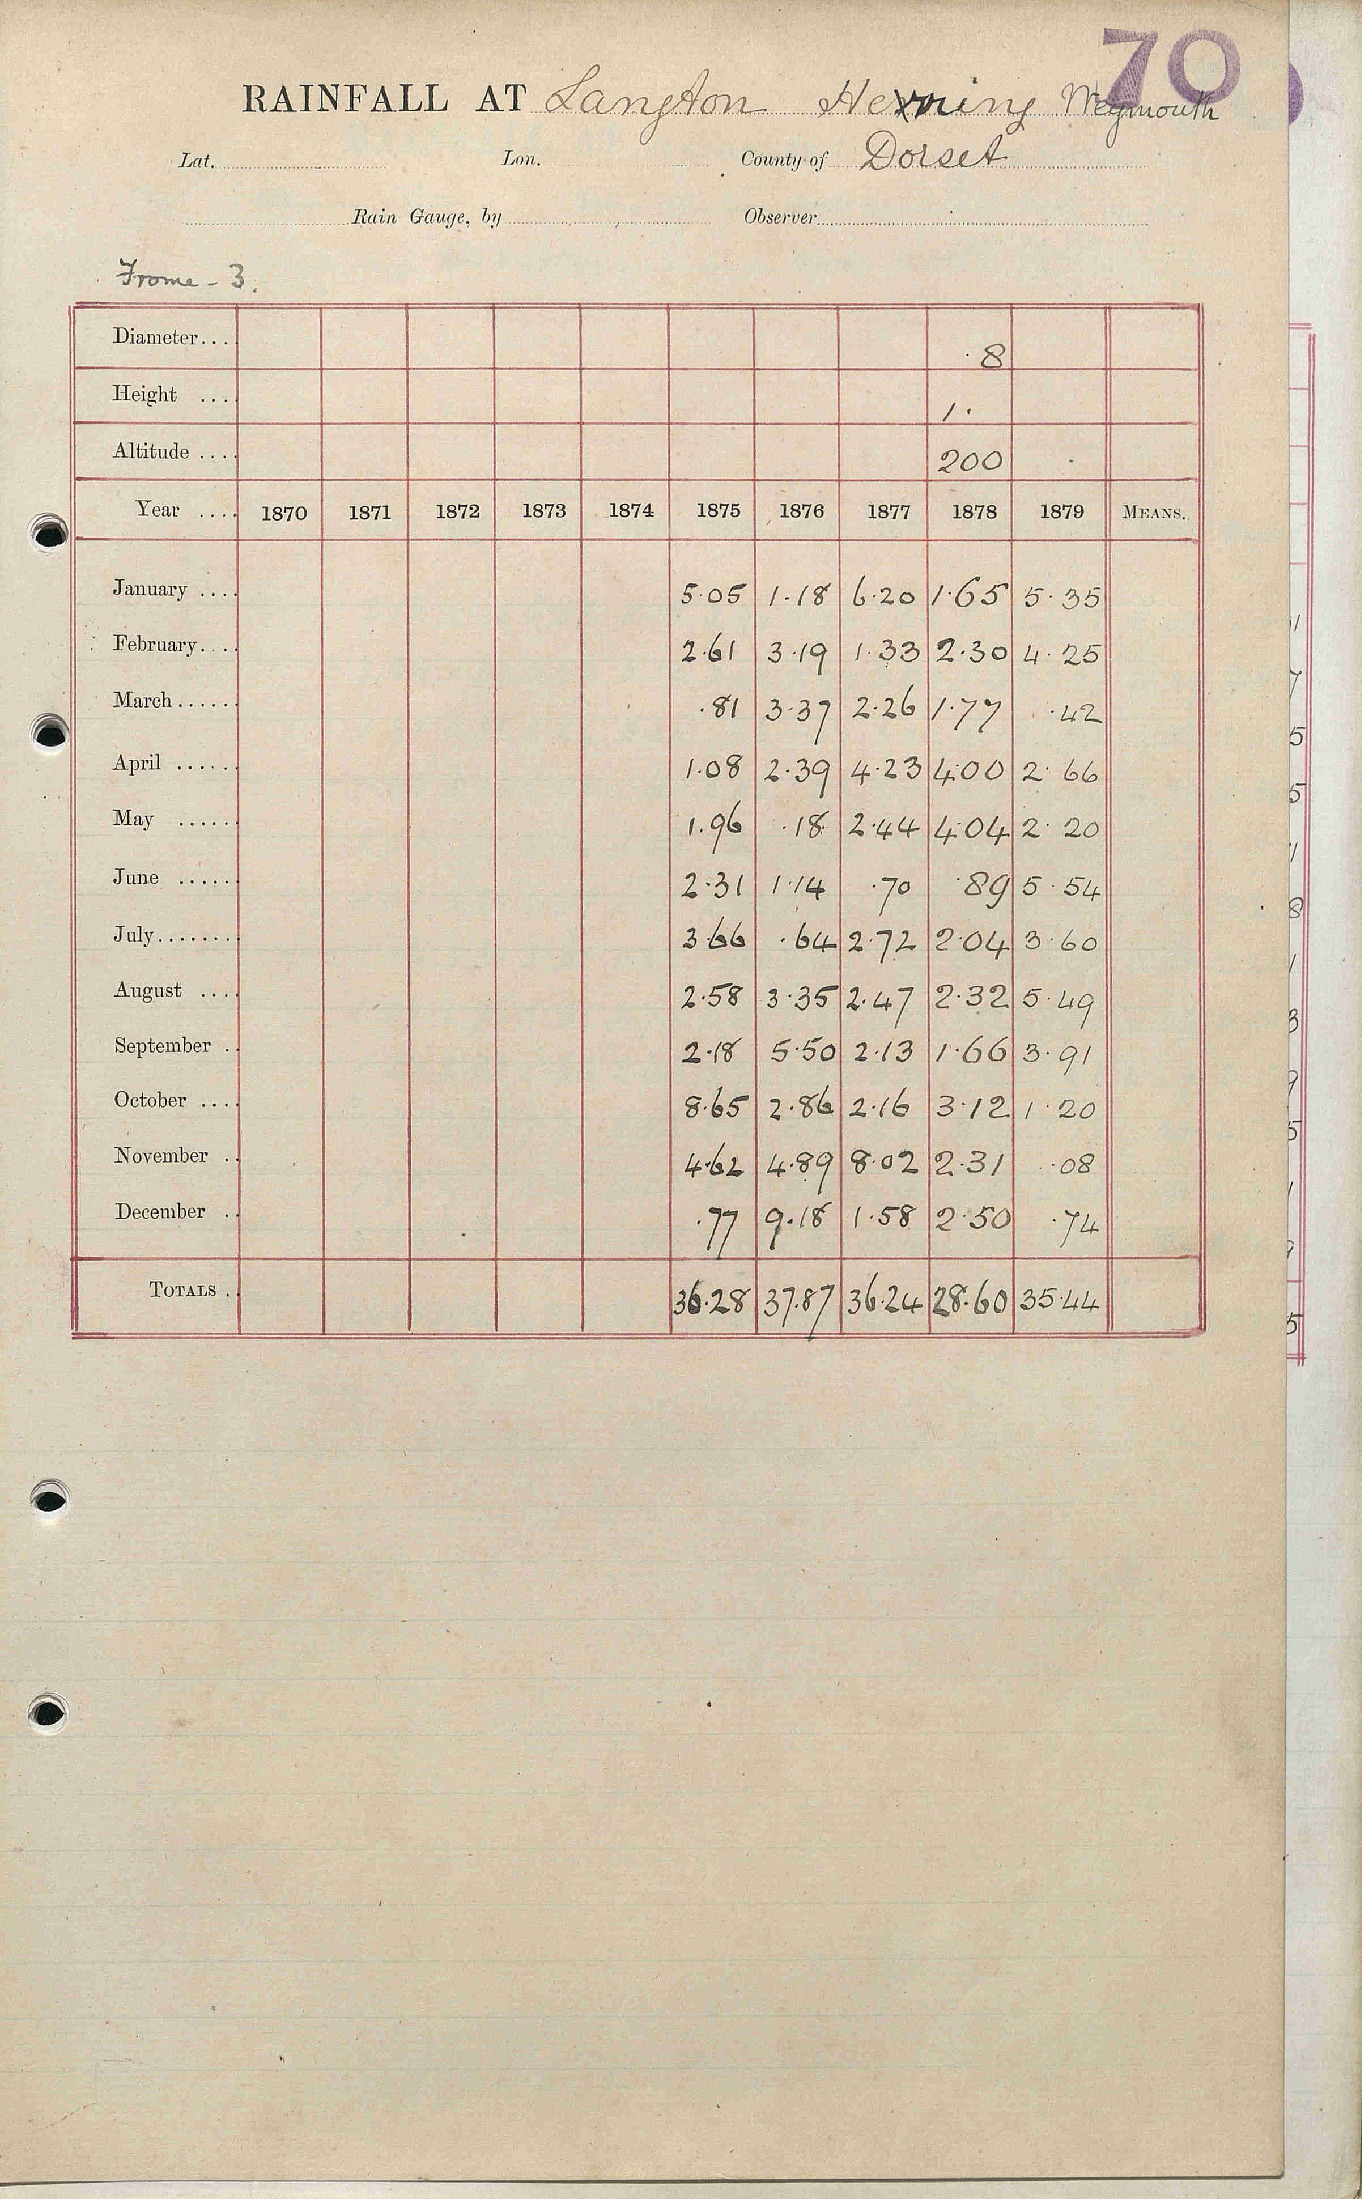 70
RAINFALL AT Langton Herring Weymouth
Lat. Lon. County of Dorset
Rain Gauge, by Observer
Frome - 3.
Diameter... 8
Height .... 1.
Altitude .... 200
Year .... 1870 1871 1872 1873 1874 1875 1876 1877 1878 1879 MEANS.
January .... 5.05 1.18 6.20 1.65 5.35
February.... 2.61 3.19 1.33 2.30 4.25
March...... .81 3.37 2.26 1.77 .42
April ...... 1.08 2.39 4.23 4.00 2.66
May ...... 1.96 .18 2.44 4.04 2.20
June ...... 2.31 1.14 .70 .89 5.54
July........ 3.66 .64 2.72 2.04 3.60
August .... 2.58 3.35 2.47 2.32 5.49
September .. 2.18 5.50 2.13 1.66 3.91
October .... 8.65 2.86 2.16 3.12 1.20
November .. 4.62 4.89 8.02 2.31 .08
December .. .77 9.18 1.58 2.50 .74
TOTALS .. 36.28 37.87 36.24 28.60 35.44